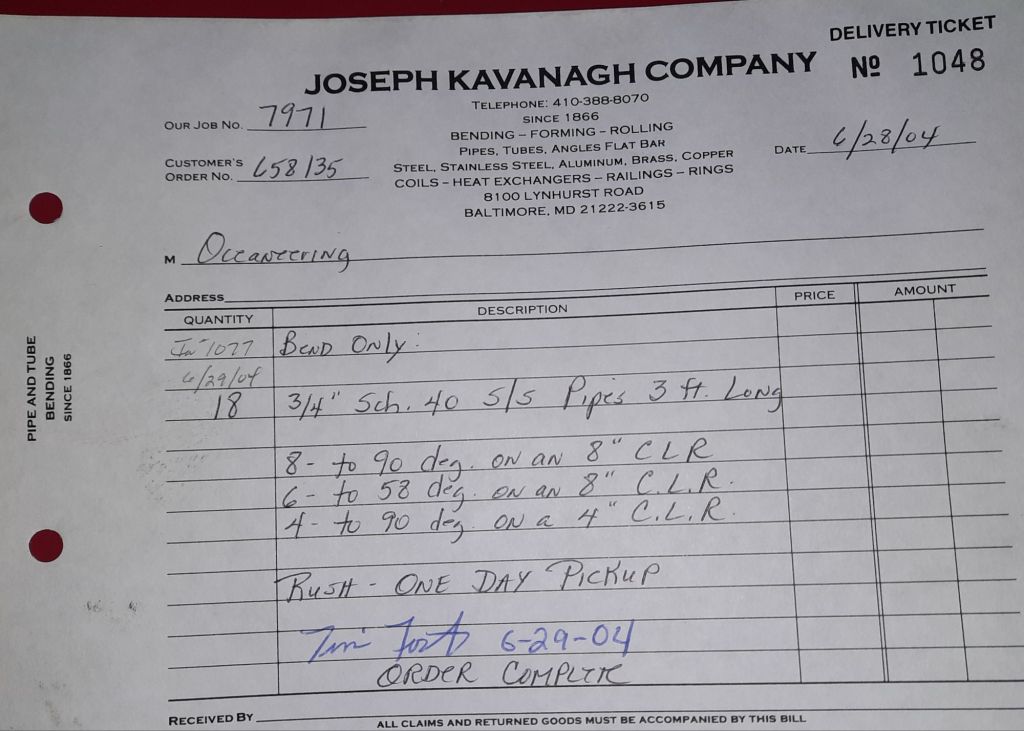 DELIVERY TICKET
JOSEPH KAVANAGH COMPANY
Nº 1048
TELEPHONE: 410-388-8070
SINCE 1866
BENDING – FORMING – ROLLING
PIPES, TUBES, ANGLES FLAT BAR
STEEL, STAINLESS STEEL, ALUMINUM, BRASS, COPPER
COILS – HEAT EXCHANGERS – RAILINGS – RINGS
8100 LYNHURST ROAD
BALTIMORE, MD 21222-3615
OUR JOB NO. 7971
CUSTOMER'S
ORDER NO. 658135
DATE 6/28/04
M Oceaneering
ADDRESS
QUANTITY DESCRIPTION PRICE AMOUNT
1077 Bend Only:
6/29/04
18 3/4" Sch. 40 S/S Pipes 3 ft. Long
8- to 90 deg. on an 8" CLR
6- to 58 deg. on an 8" C.L.R.
4- to 90 deg. on a 4" C.L.R.
Rush - One Day Pickup
Tim 6-29-04
Order Complete
RECEIVED BY
ALL CLAIMS AND RETURNED GOODS MUST BE ACCOMPANIED BY THIS BILL
PIPE AND TUBE
BENDING
SINCE 1866